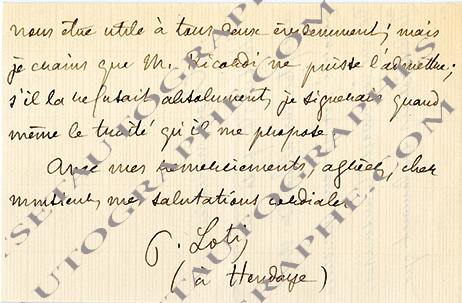 nous être utile à tous deux évidemment ; mais
je crains que M. Ricordi ne puisse l'admettre ;
s'il la refusait absolument, je signerais quand
même le traité qu'il me propose.
Avec mes remerciements, agréez, cher
monsieur, mes salutations cordiales.
P. Loti
(à Hendaye)